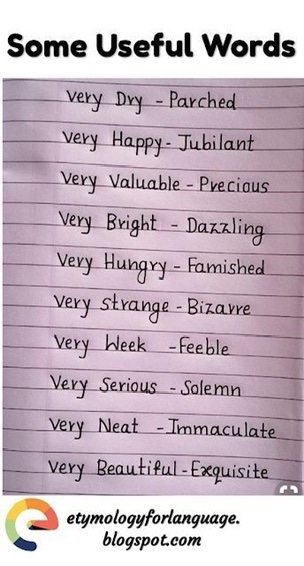 Some Useful Words
very Dry - Parched
very Happy - Jubilant
very Valuable - Precious
very Bright - Dazzling
very Hungry - Famished
very strange - Bizarre
very Week - Feeble
very Serious - Solemn
very Neat - Immaculate
very Beautiful - Exquisite
etymologyforlanguage.
blogspot.com